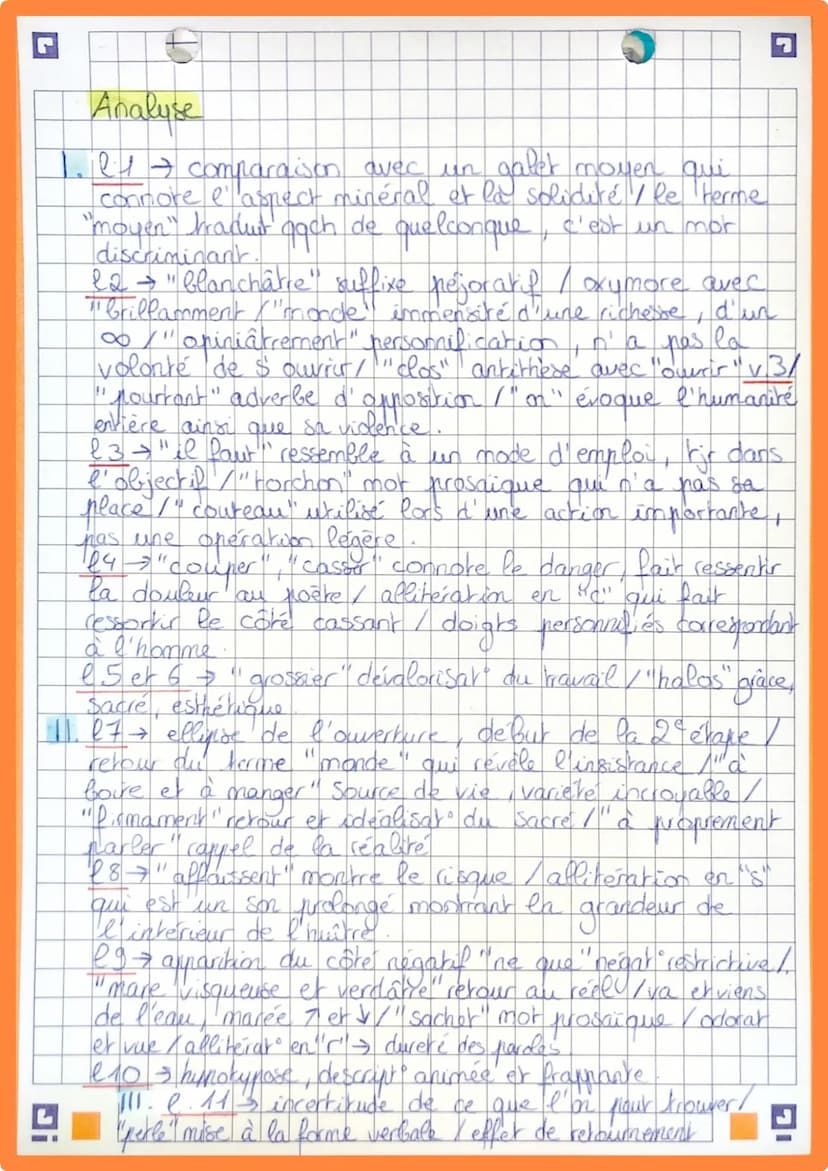 Analyse
I. l1 → comparaison avec un galet moyen qui
connote l'aspect minéral et la solidité / le terme
"moyen" traduit qqch de quelconque, c'est un mot
discriminant.
l2 → "blanchâtre" suffixe péjoratif / oxymore avec
"brillamment / "monde" immensité d'une richesse, d'un
∞ / "opiniâtrement" personnification, n'a pas la
volonté de s'ouvrir / "clos" antithèse avec "ouvrir" v.3/
"pourtant" adverbe d'opposition / "on" évoque l'humanité
entière ainsi que sa violence.
l3 → "il faut" ressemble à un mode d'emploi, tjr dans
l'objectif / "torchon" mot prosaïque qui n'a pas sa
place / "couteau" utilisé lors d'une action importante,
pas une opération légère.
l4 → "couper", "casser" connote le danger, fait ressentir
la douleur au poète / allitération en "c" qui fait
ressortir le côté cassant / doigts personnifiés correspondant
à l'homme.
l5 et 6 → "grossier" dévalorisat° du travail / "halos" grâce,
sacré, esthétique
II. l7 → ellipse de l'ouverture, début de la 2e étape /
retour du terme "monde" qui révèle l'insistance / "à
boire et à manger" source de vie, variété incroyable /
"firmament" retour et idéalisat° du sacré / "à proprement
parler" rappel de la réalité
l8 → "affaissent" montre le risque / allitération en "s"
qui est un son prolongé montrant la grandeur de
l'intérieur de l'huître.
l9 → apparition du côté négatif "ne que" négat° restrictive /
"mare visqueuse et verdâtre" retour au réel / va et viens
de l'eau, marée ↗ et ↓ / "sachet" mot prosaïque / odorat
et vue / allitérat° en "r" → dureté des paroles
l10 → hypotypose, descript° animée et frappante.
III. l.11 → incertitude de ce que l'on peut trouver/
"perle" mise à la forme verbale / effet de retournement